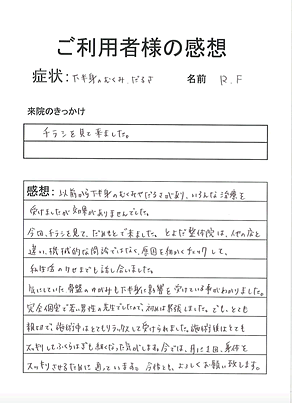 ご利用者様の感想
症状：下半身のむくみ、だるさ 名前 R.F
来院のきっかけ
チラシを見て来ました。
感想：以前から下半身のむくみやだるさがあり、いろんな治療を
受けましたが効果がありませんでした。
今回、チラシを見て、だめもとで来ました。とよだ整体院は、他の店と
違い、機械的な問診ではなく、原因を細かくチェックして、
私生活のクセまでも話し合いました。
気にしていた骨盤のゆがみも下半身に影響を受けている事がわかりました。
完全個室で若い男性の先生でしたので、初めは緊張しました。でも、とても
親切で、施術中はとてもリラックスして受けられました。施術後はとても
スッキリしてふくらはぎも細くなった気がします。今では、月に2回、身体を
スッキリさせるために通っています。今後とも、よろしくお願い致します。